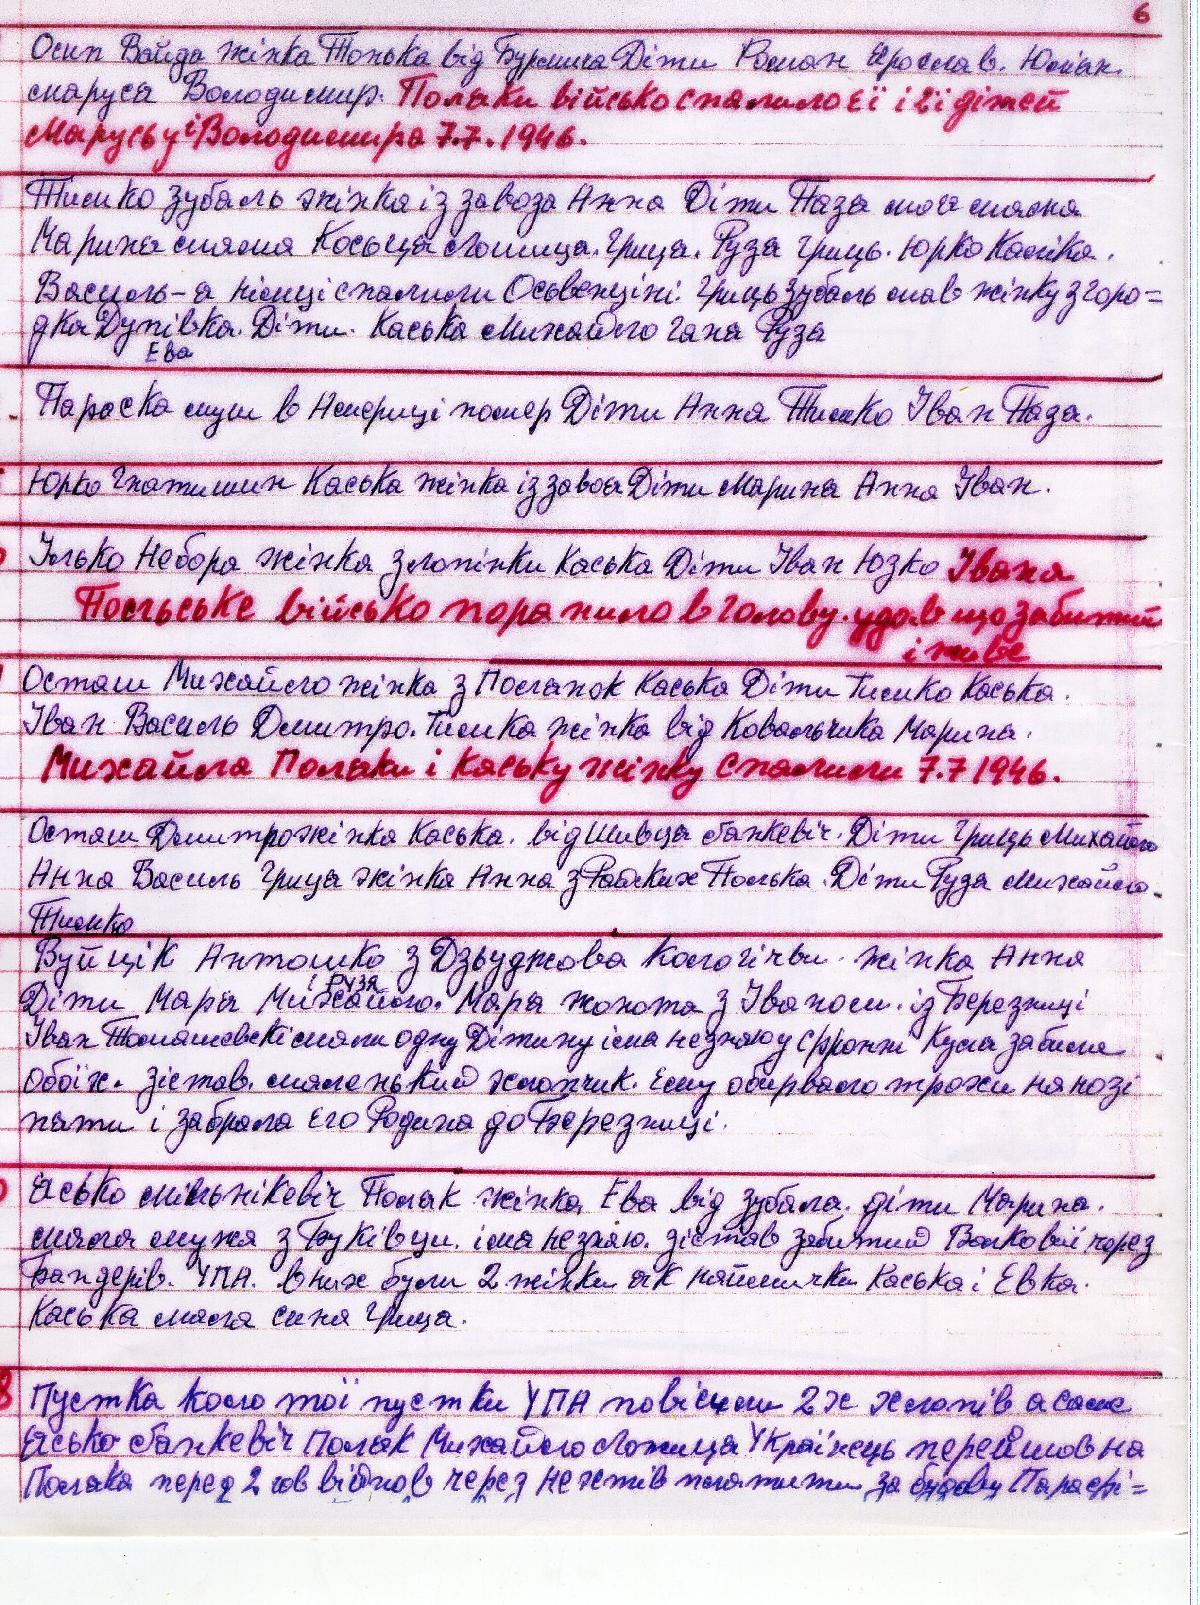 6
Осип Вайда жінка Тонька від Бурмича Діти Роман Ярослав. Юліан.
маруся Володимир. Поляки військо спалило єї і її дітей
Марусьу і Володимира 7.7.1946.
Тимко Зубаль жінка із завоза Анна Діти Паза мого мляка
Марина мляма Косьця Ложица. Грица. Рузя Гриць. Юрко Каліка.
Василь-а німці спалили Осьвенціні. Гриць Зубаль мав жінку з горо=
дка Дупівка. Діти. Каська Михайло Гана Рузя
Ева
Параска муш в Америці помер Діти Анна Тимко Іван Паза.
Юрко Гнатишин Каська жінка із завоя Діти Марина Анна Іван.
Ілько Небора жінка з лопінки Каська Діти Іван Юзко Івана
Польське військо поранило в голову. удав що забитий
і живе
Осташ Михайло жінка з Полянок Каська Діти Тимко Каська.
Іван Василь Дмитро. Тимка жінка від Ковальчика Марина.
Михайла Поляки і Каську жінку спалили 7.7 1946.
Осташ Дмитро жінка Каська. від Шивця банкевіч. Діти Гриць Михайло
Анна Василь Грица жінка Анна з Райских Полька. Діти Рузя Михайло.
Тимко
Вуйцік Антошко з Дзьуджова Кологічви. жінка Анна
і Рузя
Діти Мара Михайло. Мара жоната з Іваном. із Березниці
Іван Томашевскі мали одну Дітину імя незнаю у фронт Куля забила
обоїх. зістав. маленький хлопчик. ему обірвало трохи на нозі
пяти і забрала его Родина до Березниці.
Ясько мільнікевіч Поляк жінка Ева від Зубаля. діти Марина.
мала мужа з Буківци. імя незнаю. зістав забитий Волковиї через
Бандерів. УПА. в них були 2 жінки як наймички Каська і Евка.
Каська мала сина Грица.
8
Пустка коло тої пустки УПА повісили 2х хлопів а саме
Ясько банкевіч Поляк Михайло Ложица Українець перейшов на
Поляка перед 2 гов війнов через не хтів платити за будову Парафі=